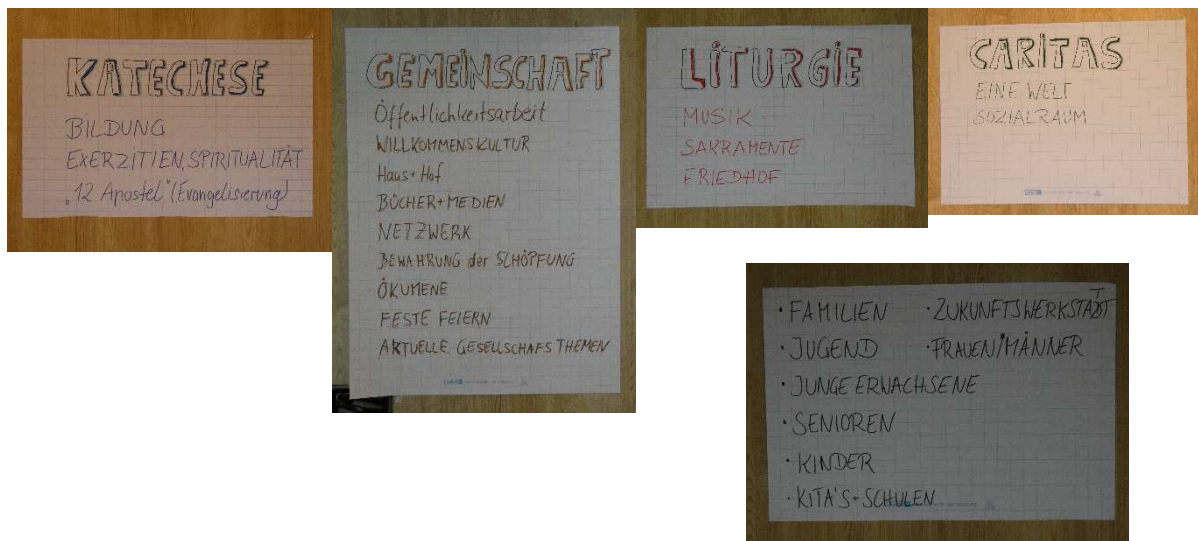 KATECHESE
BILDUNG
EXERZITIEN, SPIRITUALITÄT
„12 Apostel" (Evangelisierung)
GEMEINSCHAFT
Öffentlichkeitsarbeit
WILLKOMMENSKULTUR
Haus+Hof
BÜCHER+MEDIEN
NETZWERK
BEWAHRUNG der SCHÖPFUNG
ÖKUMENE
FESTE FEIERN
AKTUELLE GESELLSCHAFS THEMEN
LiTURGiE
MUSIK
SAKRAMENTE
FRIEDHOF
CARiTAS
EINE WELT
SOZIALRAUM
• FAMILIEN
• JUGEND
• JUNGE ERWACHSENE
• SENIOREN
• KINDER
• KITA'S + SCHULEN
• ZUKUNFTSWERKSTATT
• FRAUEN/MÄNNER